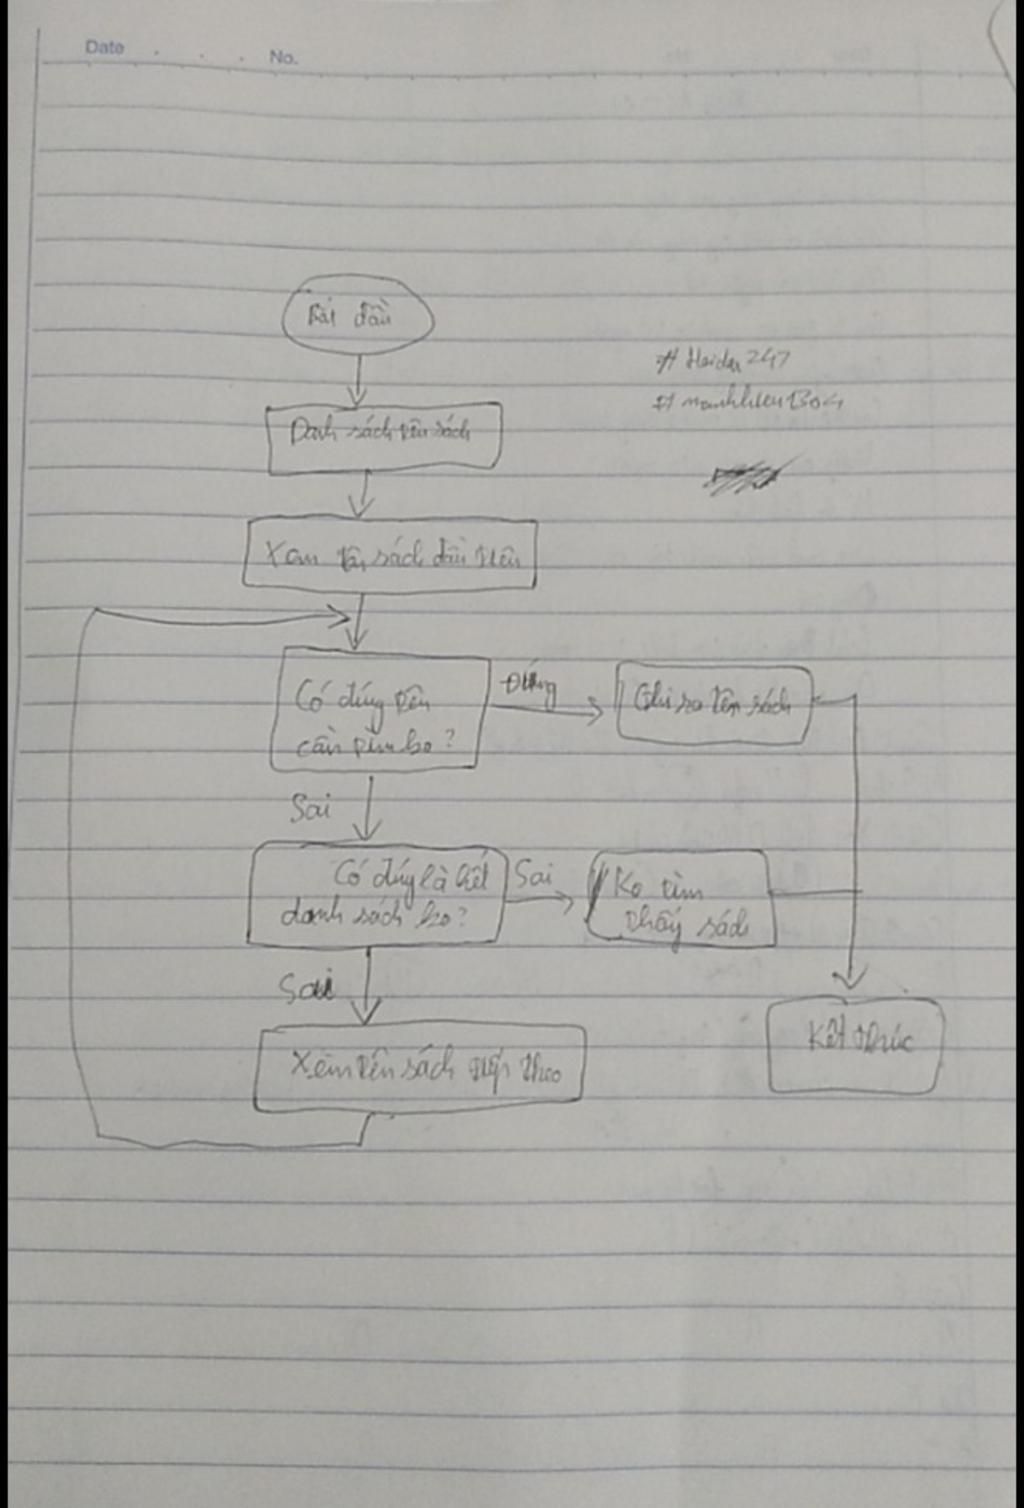 Date No.
Bắt đầu
# Haidar247
# manhhieu1304
Danh sách tên sách
Xem tên sách đầu tiên
Có đúng tên
cần tìm ko?
Đúng
Ghi ra tên sách
Sai
Có đúng là hết
danh sách ko?
Sai
Ko tìm
thấy sách
Sai
Kết thúc
Xem tên sách tiếp theo